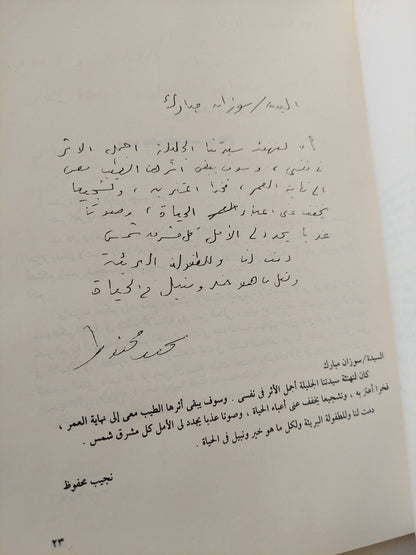 السيدة/ سوزان مبارك
كان لتهنئة سيدتنا الجليلة أجمل الأثر
فى نفسى ، وسوف يبقى أثرها الطيب معى
إلى نهاية العمر ، فخرا أعتز به ، وتشجيعا
يخفف عنى أعباء الحياة ، وصوتا
عذبا يجدد لى الأمل كل مشرق شمس
دمت لنا وللطفولة البريئة
ولكل ما هو خير ونبيل فى الحياة
نجيب محفوظ
السيدة/ سوزان مبارك
كان لتهنئة سيدتنا الجليلة أجمل الأثر فى نفسى . وسوف يبقى أثرها الطيب معى إلى نهاية العمر ،
فخرا أعتز به ، وتشجيعا يخفف عنى أعباء الحياة ، وصوتا عذبا يجدد لى الأمل كل مشرق شمس .
دمت لنا وللطفولة البريئة ولكل ما هو خير ونبيل فى الحياة .
نجيب محفوظ
٢٣